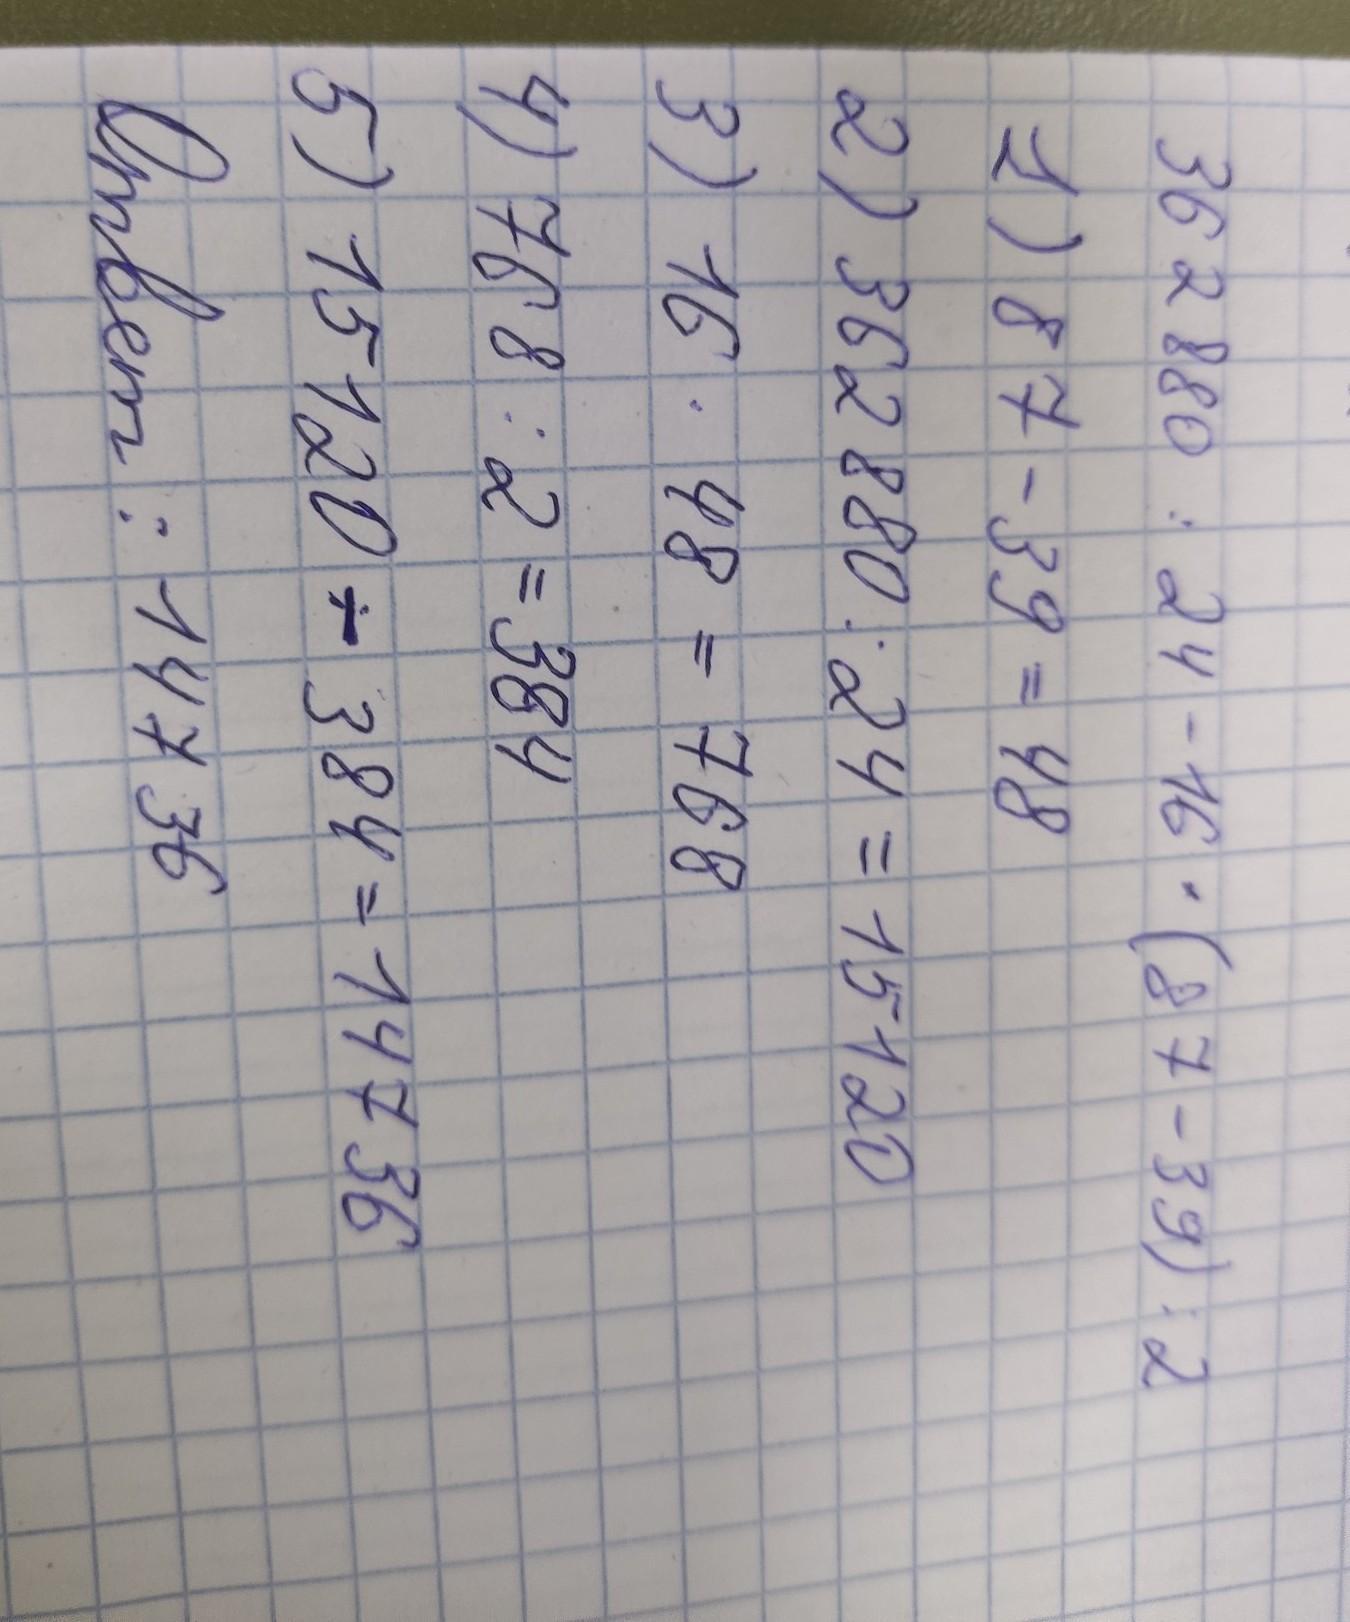 362880 : 24 - 16 · (87 - 39) : 2
1) 87 - 39 = 48
2) 362880 : 24 = 15120
3) 16 · 48 = 768
4) 768 : 2 = 384
5) 15120 - 384 = 14736
Ответ : 14736